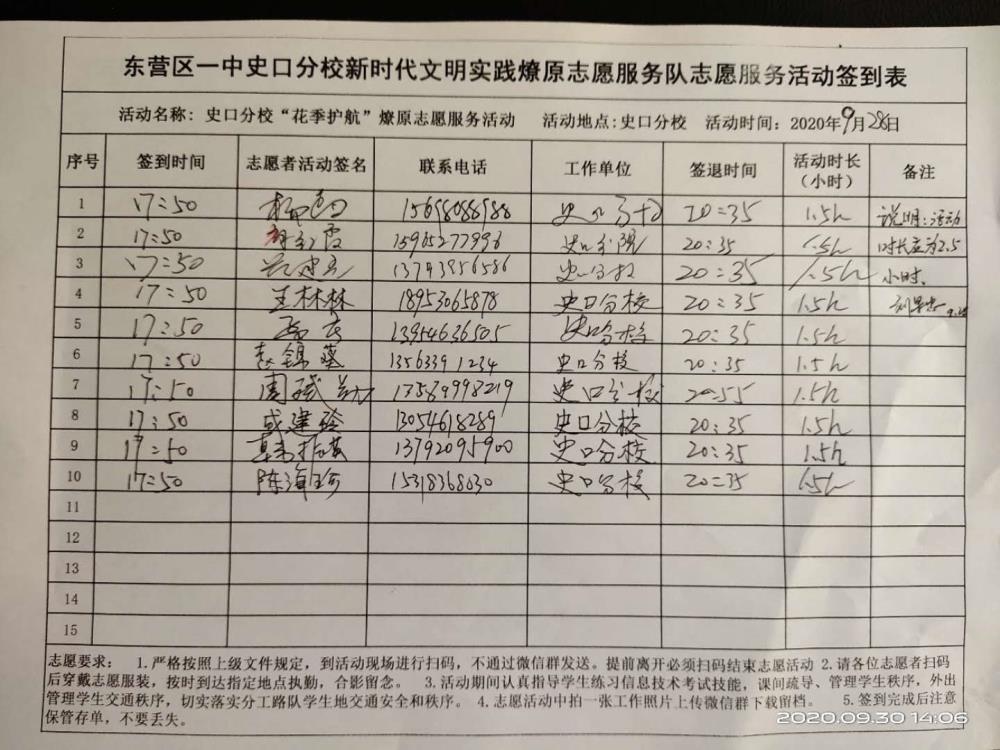 东营区一中史口分校新时代文明实践燎原志愿服务队志愿服务活动签到表
活动名称: 史口分校“花季护航”燎原志愿服务活动 活动地点:史口分校 活动时间: 2020年9月28日
序号 签到时间 志愿者活动签名 联系电话 工作单位 签退时间 活动时长（小时） 备注
1 17:50 15698088988 20:35 1.5h 说明:活动
2 17:50 15965277996 史口分院 20:35 1.5h 时长应为2.5
3 17:50 13793956586 史口分校 20:35 1.5h 小时.
4 17:50 王林林 18953065878 史口分校 20:35 1.5h
5 17:50 13954636505 史口分校 20:35 1.5h
6 17:50 13563391234 史口分校 20:35 1.5h
7 17:50 13589998219 史口分校 20:55 1.5h
8 17:50 13054618289 史口分校 20:35 1.5h
9 17:50 13792095900 史口分校 20:35 1.5h
10 17:50 15318368030 史口分校 20:35 1.5h
11
12
13
14
15
志愿要求: 1.严格按照上级文件规定，到活动现场进行扫码，不通过微信群发送。提前离开必须扫码结束志愿活动 2.请各位志愿者扫码
后穿戴志愿服装，按时到达指定地点执勤，合影留念。 3.活动期间认真指导学生练习信息技术考试技能，课间疏导、管理学生秩序，外出
管理学生交通秩序，切实落实分工路队学生地交通安全和秩序。 4.志愿活动中拍一张工作照片上传微信群下载留档。 5.签到完成后注意
保管存单，不要丢失。
2020.09.30 14:06